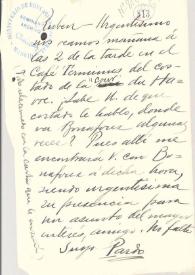 Rubén - Urgentísimo
nos veamos mañana a
las 2 de la tarde en el
Café Termunus, del cos-
tado de la "Cour" du Ha-
vre. Sabe V. de que
costado le hablo, donde
va Bonafoux algunas
veces? Pues allí me
encontrará V. con Bo-
nafoux a dicha hora,
siendo urgentísima
su presencia para
un asunto del mayor
interés, amigo. No falte
Suyo Pardo